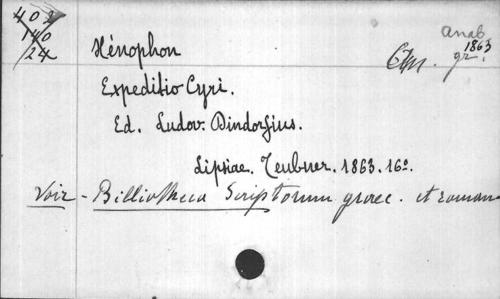 402
140
24
Anab
1863
gr.
Xénophon
Expeditio Cyri.
Ed. Ludov. Dindorfius.
Lipsiae. Teubner. 1863. 16º.
Voir - Bibliotheca Scriptorum graec. et roman